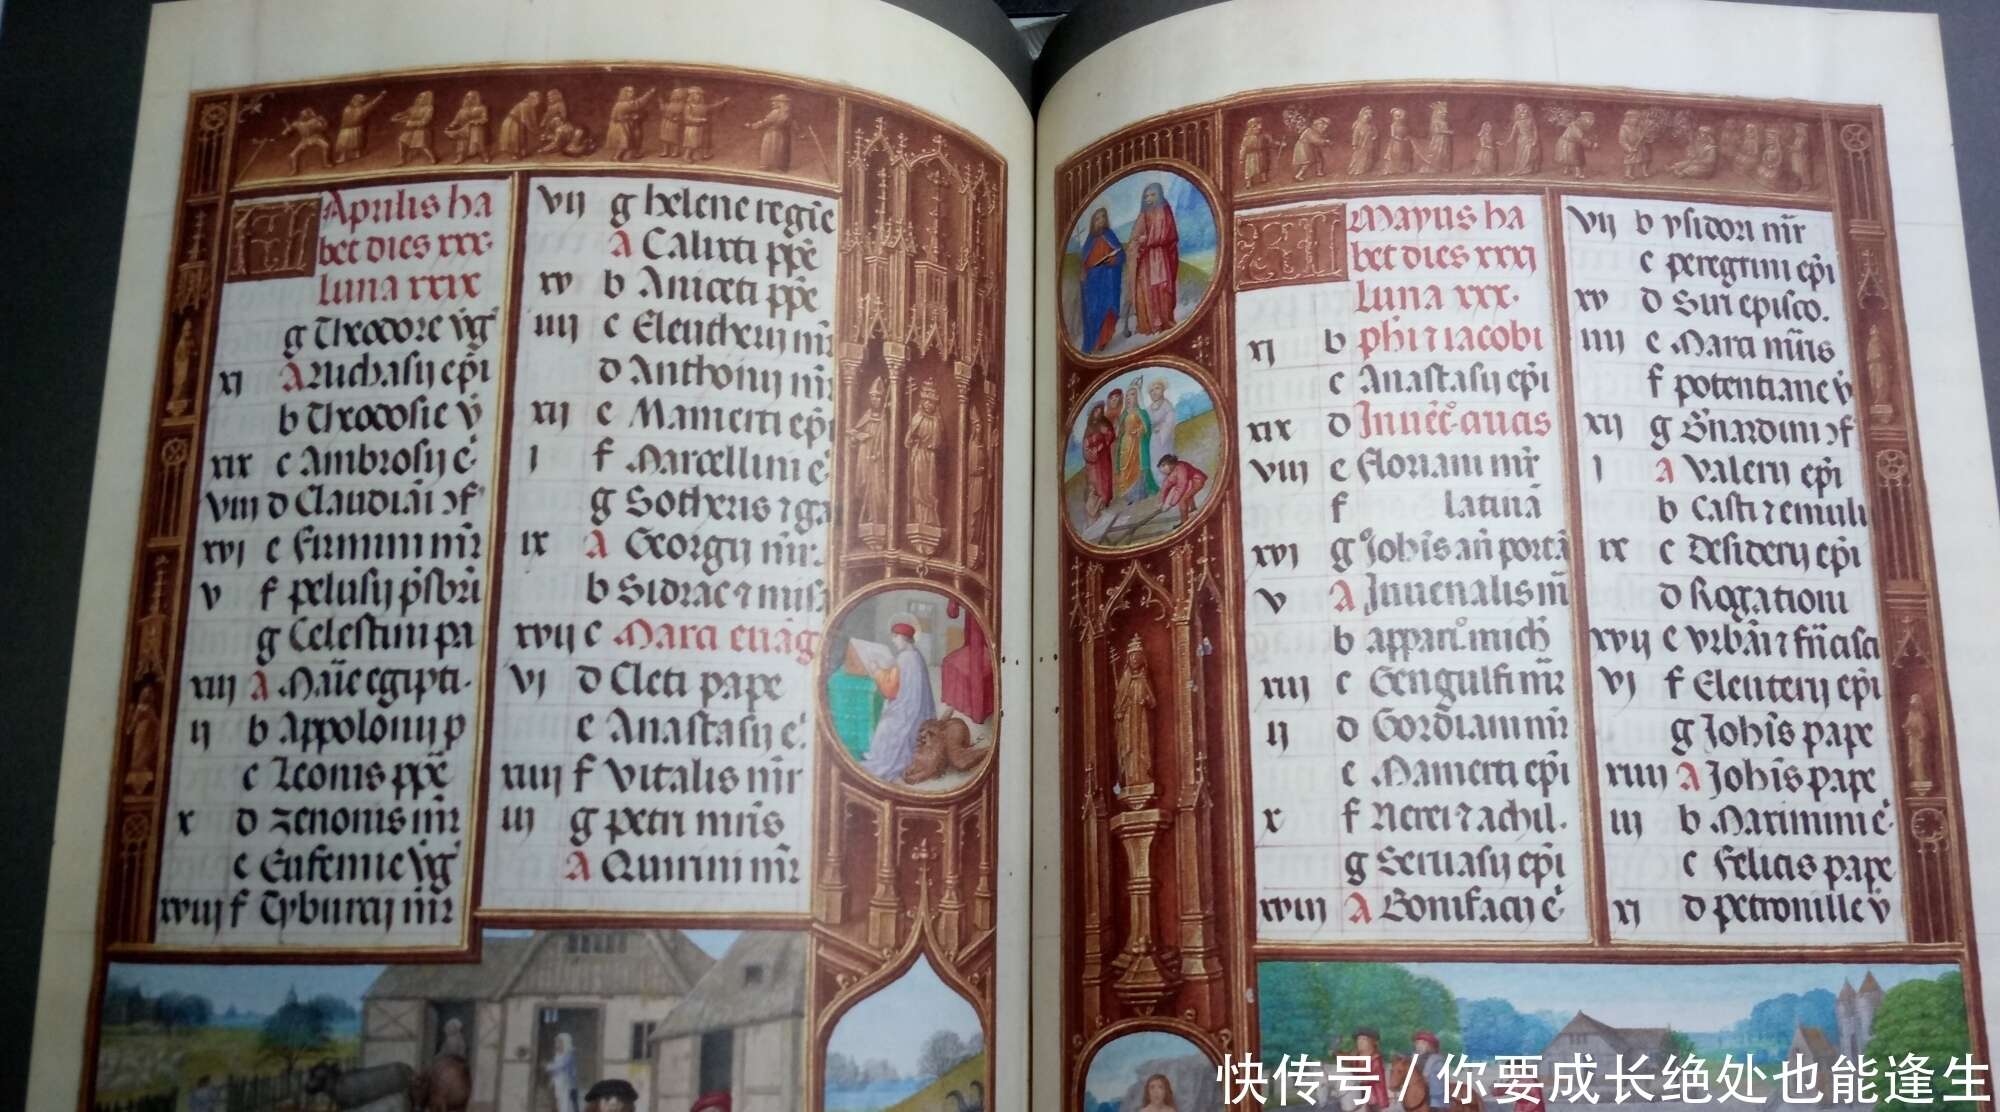 KL Aprilis ha
bet dies xxx.
Luna xxix
g Theodore v̄ḡ
xi A Ruchasij ep̄i
b Theodosie v̄
xix c Ambrosij e.
viii d Claudiāi ɔf
xvi e Firmini m̄r
v f pelusij p̄sbr̄i
g Celestini pa
xiii A Mar̄ie egipti.
ii b Appolonij p
c Leonis pp̄e
x d zenonis m̄r
e Eufemie v̄ḡ
xviii f Tyburcij m̄r
vii g helene regīe
A Calixti pp̄e
xv b Aniceti pp̄e
iiii c Eleutherij m̄r
d Anthonij m̄r
xii e Mamerti ep̄i
i f Marcellini e
g Sotheris ⁊ ga
ix A Georgij m̄r.
b Sidrac ⁊ mis
xvii c Marci evāg
vi d Cleti pape
e Anastasij e.
xiiii f Vitalis m̄r
iii g petri m̄ris
A Quirini m̄r
KL Mayus ha
bet dies xxxi
Luna xxx.
xi b ph̄i ⁊ iacobi
c Anastasij ep̄i
xix d Inuēc̄o crucis
viii e Floriani m̄r
f latinā
xvi g Joh̄is an̄ portā
v A Juuenalis m̄
b apparic̄o mich̄
xiii c Gengulfi m̄r
ii d Gordiani m̄r
e Mamerti ep̄i
x f Nerei ⁊ achil.
g Seruasij ep̄i
xviii A Bonifacij e.
vii b ysidori m̄r
c peregrini ep̄i
xv d Siri episco.
iiii e Marci m̄ris
f potentiane v̄
xii g B̄nardini ɔf
i A Valerij ep̄i
b Casti ⁊ emuli
ix c Desiderij ep̄i
d Rogationi
xvii e Vrbāi ⁊ fr̄ācisci
vi f Eleuterij ep̄i
g Joh̄is pape
xiiii A Joh̄is pape
iii b Maximini e.
c Felicis pape
xi d petronille v̄
快传号 / 你要成长绝处也能逢生